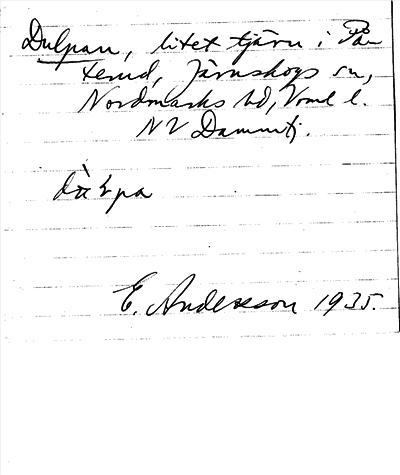 Dulpan, litet tjärn i Pän
terud, Järnskogs sn,
Nordmarks hd, Vrml l.
NV Dammtj.
E. Andersson 1935.